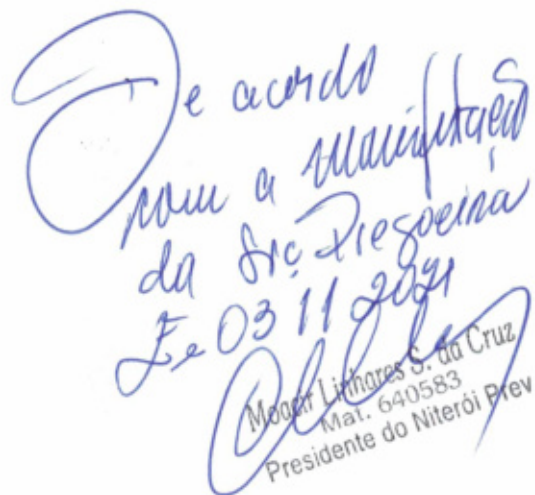 De acordo
com a manifestação
da Srª Pregoeira
Em 03 11 2021
Moacir Linhares S. da Cruz
Mat. 640583
Presidente do Niterói Prev